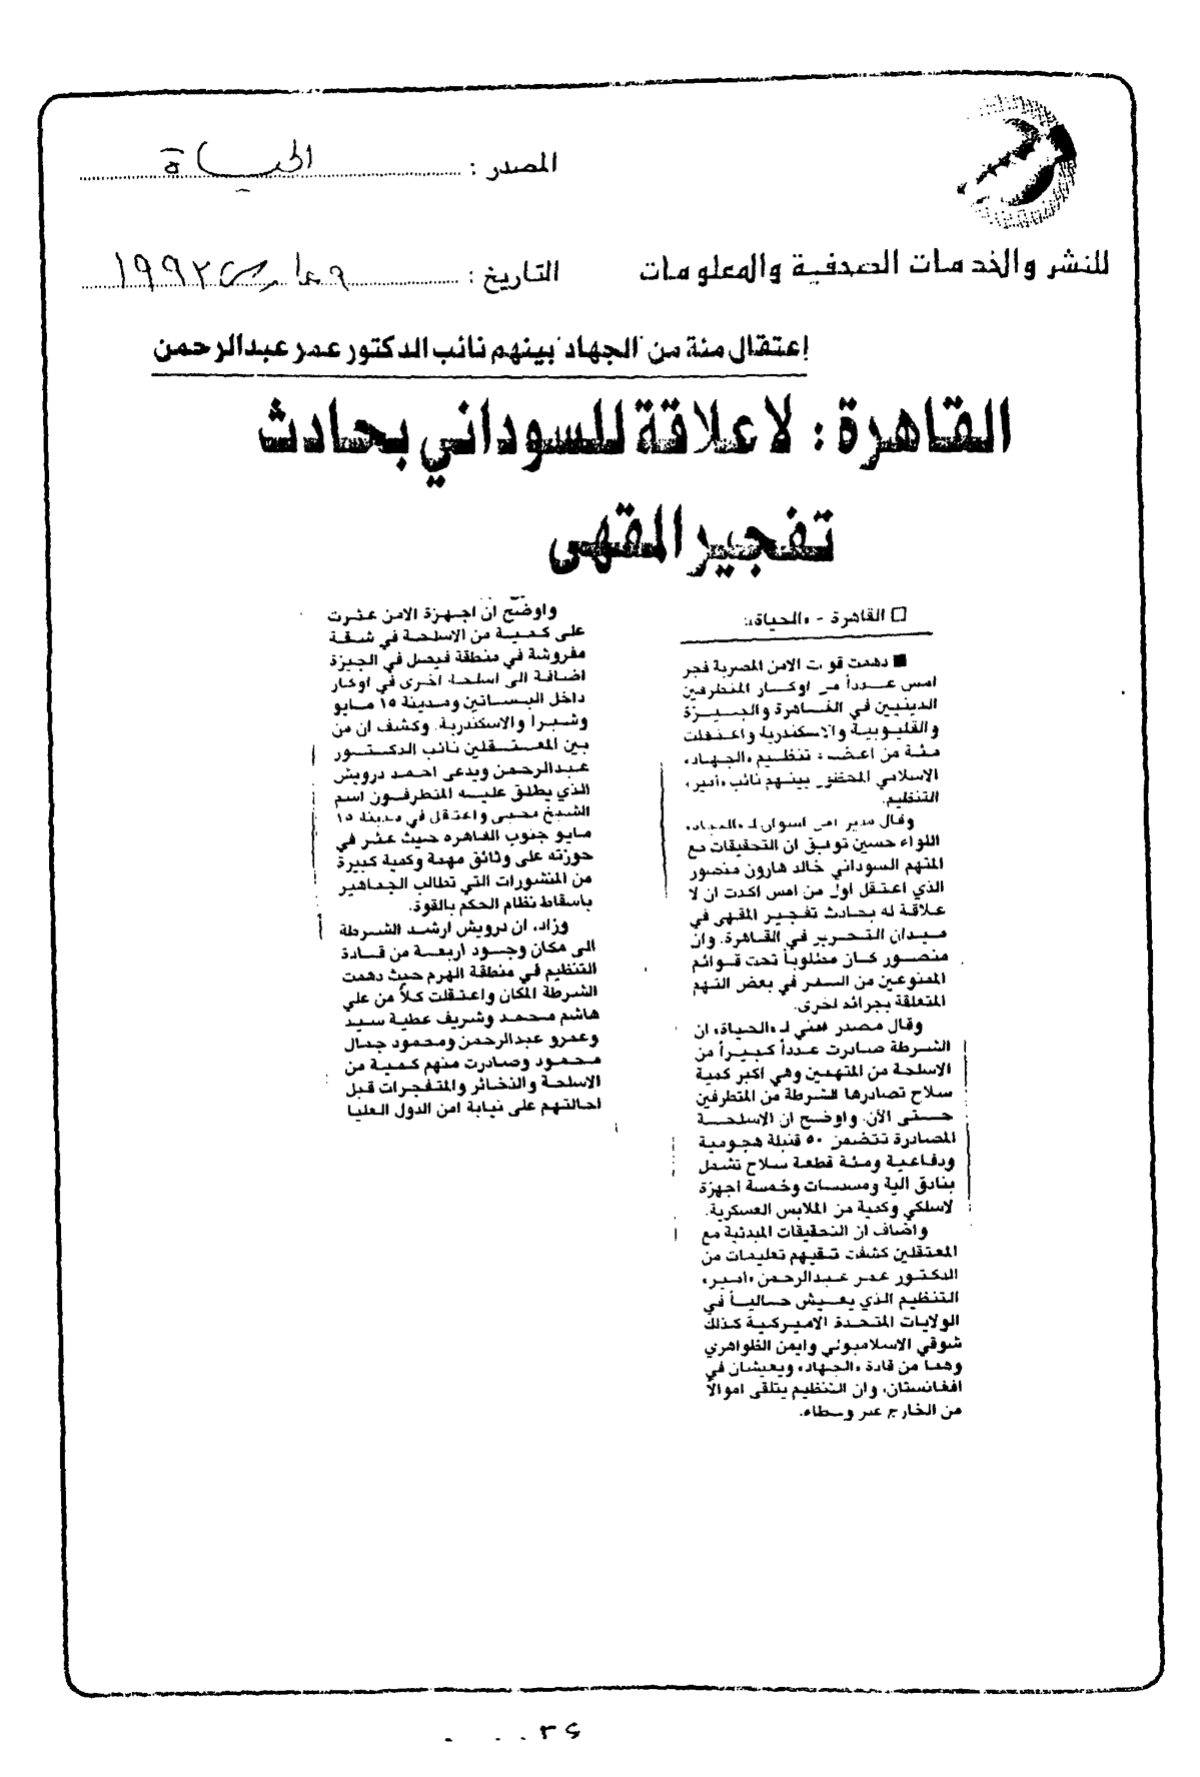 المصدر : الحياة
للنشر والخدمات الصحفية والمعلومات
التاريخ : ٩ مارس ١٩٩٣
إعتقال مئة من "الجهاد" بينهم نائب الدكتور عمر عبدالرحمن
القاهرة : لا علاقة للسوداني بحادث
تفجير المقهى
□ القاهرة - «الحياة»:
■ دهمت قوات الامن المصرية فجر
امس عدداً من اوكار المتطرفين
الدينيين في القاهرة والجيزة
والقليوبية والاسكندرية واعتقلت
مئة من اعضاء تنظيم «الجهاد»
الاسلامي المحظور بينهم نائب «أمير»
التنظيم.
وقال مدير امن اسوان لـ «الحياة»
اللواء حسين توفيق ان التحقيقات مع
المتهم السوداني خالد هارون منصور
الذي اعتقل اول من امس اكدت ان لا
علاقة له بحادث تفجير المقهى في
ميدان التحرير في القاهرة. وان
منصور كان مطلوباً تحت قوائم
الممنوعين من السفر في بعض التهم
المتعلقة بجرائد اخرى.
وقال مصدر امني لـ «الحياة» ان
الشرطة صادرت عدداً كبيراً من
الاسلحة من المتهمين وهي اكبر كمية
سلاح تصادرها الشرطة من المتطرفين
حتى الآن. واوضح ان الاسلحة
المصادرة تتضمن ٥٠ قنبلة هجومية
ودفاعية ومئة قطعة سلاح تشمل
بنادق آلية ومسدسات وخمسة اجهزة
لاسلكي وكمية من الملابس العسكرية.
واضاف ان التحقيقات المبدئية مع
المعتقلين كشفت تلقيهم تعليمات من
الدكتور عمر عبدالرحمن «أمير»
التنظيم الذي يعيش حالياً في
الولايات المتحدة الاميركية كذلك
شوقي الاسلامبولي وايمن الظواهري
وهما من قادة «الجهاد» ويعيشان في
افغانستان، وان التنظيم يتلقى اموالاً
من الخارج عبر وسطاء.
واوضح ان اجهزة الامن عثرت
على كمية من الاسلحة في شقة
مفروشة في منطقة فيصل في الجيزة
اضافة الى اسلحة اخرى في اوكار
داخل البساتين ومدينة ١٥ مايو
وشبرا والاسكندرية. وكشف ان من
بين المعتقلين نائب الدكتور
عبدالرحمن ويدعى احمد درويش
الذي يطلق عليه المتطرفون اسم
الشيخ محيى واعتقل في مدينة ١٥
مايو جنوب القاهرة حيث عثر في
حوزته على وثائق مهمة وكمية كبيرة
من المنشورات التي تطالب الجماهير
باسقاط نظام الحكم بالقوة.
وزاد، ان درويش ارشد الشرطة
الى مكان وجود اربعة من قادة
التنظيم في منطقة الهرم حيث دهمت
الشرطة المكان واعتقلت كلاً من علي
هاشم محمد وشريف عطية سيد
وعمرو عبدالرحمن ومحمود جمال
محمود وصادرت منهم كمية من
الاسلحة والذخائر والمتفجرات قبل
احالتهم على نيابة امن الدول العليا